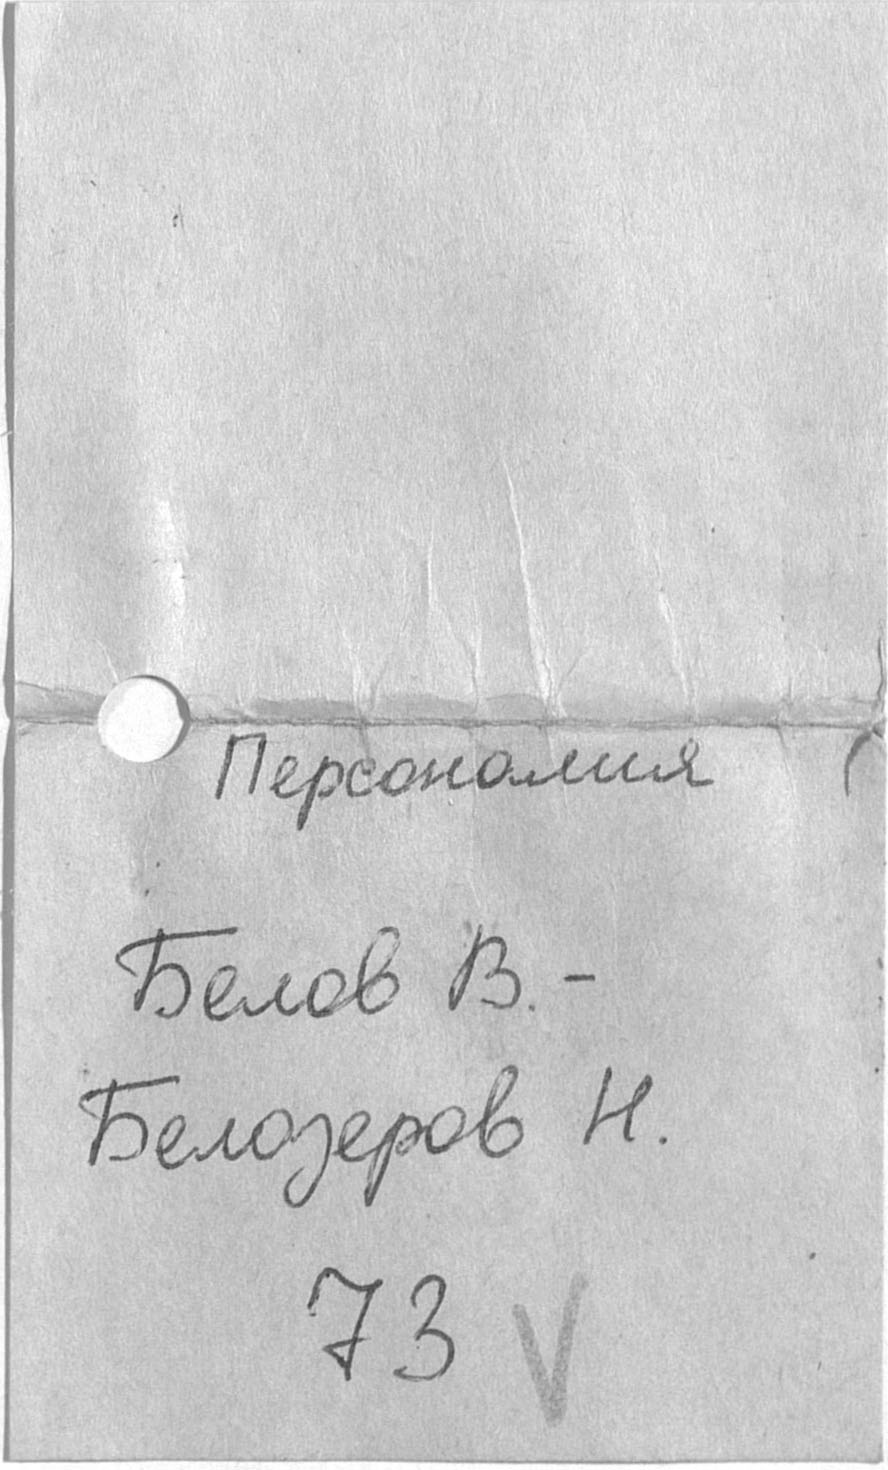 Персоналия
Белов В. -
Белозеров Н.
73 V